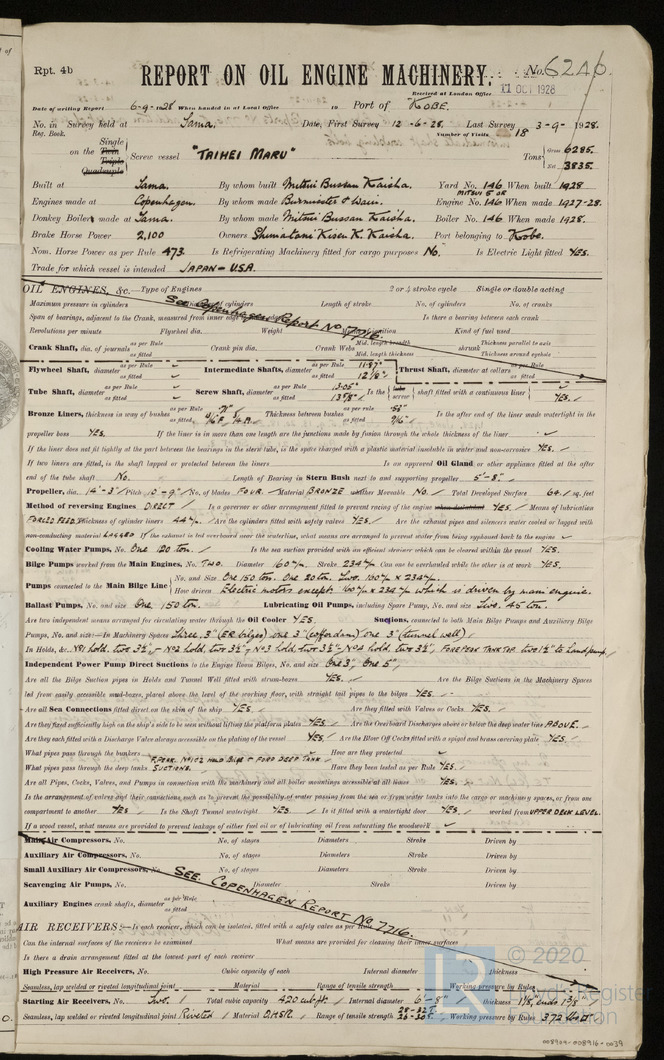 Rpt. 4b
REPORT ON OIL ENGINE MACHINERY. No. 6246.
Received at London Office 11 OCT 1928
Date of writing Report 6-9-1928 When handed in at Local Office 19 Port of KOBE.
No. in Survey held at Tama. Date, First Survey 12-6-28. Last Survey 3-9-1928.
Reg. Book. Number of Visits 18
Single
on the Twin Screw vessel "TAIHEI MARU" Tons Gross 6285.
Triple
Quadruple Net 3835.
Built at Tama. By whom built Mitsui Bussan Kaisha. Yard No. 146 When built 1928
Engines made at Copenhagen. By whom made Burmeister & Wain. Engine No. 146 When made 1927-28.
Donkey Boiler made at Tama. By whom made Mitsui Bussan Kaisha. Boiler No. 146 When made 1928.
Brake Horse Power 2,100 Owners Shimatani Kisen K. Kaisha. Port belonging to Kobe.
Nom. Horse Power as per Rule 473. Is Refrigerating Machinery fitted for cargo purposes No. Is Electric Light fitted YES.
Trade for which vessel is intended JAPAN - U.S.A.
OIL ENGINES, &c.—Type of Engines 2 or 4 stroke cycle Single or double acting
Maximum pressure in cylinders Diameter of cylinders Length of stroke No. of cylinders No. of cranks
See Copenhagen Report No. 7716.
Span of bearings, adjacent to the Crank, measured from inner edge Is there a bearing between each crank
Revolutions per minute Flywheel dia. Weight Means of ignition Kind of fuel used
Crank Shaft, dia. of journals as per Rule as fitted Crank pin dia. Crank Webs Mid. length breadth Mid. length thickness shrunk Thickness parallel to axis Thickness around eyehole
Flywheel Shaft, diameter as per Rule as fitted Intermediate Shafts, diameter as per Rule 11.87" as fitted 12 1/8" Thrust Shaft, diameter at collars as per Rule as fitted
Tube Shaft, diameter as per Rule as fitted Screw Shaft, diameter as per Rule 13.05" as fitted 13 7/8" Is the tube screw shaft fitted with a continuous liner YES.
Bronze Liners, thickness in way of bushes as per Rule as fitted Thickness between bushes as per rule as fitted 9/16" Is the after end of the liner made watertight in the
propeller boss YES. If the liner is in more than one length are the junctions made by fusion through the whole thickness of the liner
If the liner does not fit tightly at the part between the bearings in the stern tube, is the space charged with a plastic material insoluble in water and non-corrosive YES.
If two liners are fitted, is the shaft lapped or protected between the liners Is an approved Oil Gland or other appliance fitted at the after
end of the tube shaft No. Length of Bearing in Stern Bush next to and supporting propeller 5'-8".
Propeller, dia. 14'-3" Pitch 10'-9" No. of blades FOUR. Material BRONZE whether Moveable NO. Total Developed Surface 64. sq. feet
Method of reversing Engines DIRECT Is a governor or other arrangement fitted to prevent racing of the engine when declutched YES. Means of lubrication
FORCED FEED Thickness of cylinder liners 44 m/m. Are the cylinders fitted with safety valves YES. Are the exhaust pipes and silencers water cooled or lagged with
non-conducting material LAGGED If the exhaust is led overboard near the waterline, what means are arranged to prevent water from being syphoned back to the engine
Cooling Water Pumps, No. One 120 ton. Is the sea suction provided with an efficient strainer which can be cleared within the vessel YES.
Bilge Pumps worked from the Main Engines, No. TWO. Diameter 160 m/m. Stroke 234 m/m. Can one be overhauled while the other is at work YES.
Pumps connected to the Main Bilge Line No. and Size One 150 ton. One 20 ton. Two. 160 m/m x 234 m/m.
How driven Electric motors except 160 m/m x 234 m/m which is driven by main engine.
Ballast Pumps, No. and size One, 150 ton. Lubricating Oil Pumps, including Spare Pump, No. and size Two. 45 ton.
Are two independent means arranged for circulating water through the Oil Cooler YES. Suctions, connected to both Main Bilge Pumps and Auxiliary Bilge
Pumps, No. and size:—In Machinery Spaces Three, 3" (ER bilges) one 3" (cofferdam) one 3" (tunnel well)
In Holds, &c. No1 hold, two 3½", No2 hold, two 3½", No3 hold, two 3½", No4 hold, two 3½", FORE PEAK TANK TOP two 1½" to hand pump,
Independent Power Pump Direct Suctions to the Engine Room Bilges, No. and size One 3", One 5",
Are all the Bilge Suction pipes in Holds and Tunnel Well fitted with strum-boxes YES. Are the Bilge Suctions in the Machinery Spaces
led from easily accessible mud-boxes, placed above the level of the working floor, with straight tail pipes to the bilges YES.
Are all Sea Connections fitted direct on the skin of the ship YES. Are they fitted with Valves or Cocks. YES.
Are they fixed sufficiently high on the ship's side to be seen without lifting the platform plates YES. Are the Overboard Discharges above or below the deep water line ABOVE.
Are they each fitted with a Discharge Valve always accessible on the plating of the vessel YES. Are the Blow Off Cocks fitted with a spigot and brass covering plate YES.
What pipes pass through the bunkers How are they protected
What pipes pass through the deep tanks F.PEAK. No 1 & 2 HOLD BILGE & FORD DEEP TANK SUCTIONS. Have they been tested as per Rule YES.
Are all Pipes, Cocks, Valves, and Pumps in connection with the machinery and all boiler mountings accessible at all times YES.
Is the arrangement of valves and their connections, such as to prevent the possibility of water passing from the sea or from water tanks into the cargo or machinery spaces, or from one
compartment to another YES Is the Shaft Tunnel watertight YES. Is it fitted with a watertight door YES. worked from UPPER DECK LEVEL.
If a wood vessel, what means are provided to prevent leakage of either fuel oil or lubricating oil from saturating the woodwork
Main Air Compressors, No. No. of stages Diameters Stroke Driven by
Auxiliary Air Compressors, No. No. of stages Diameters Stroke Driven by
Small Auxiliary Air Compressors, No. No. of stages Diameters Stroke Driven by
Scavenging Air Pumps, No. Diameter Stroke Driven by
SEE. COPENHAGEN REPORT NO. 7716.
Auxiliary Engines crank shafts, diameter as per Rule as fitted
AIR RECEIVERS:—Is each receiver, which can be isolated, fitted with a safety valve as per Rule
Can the internal surfaces of the receivers be examined What means are provided for cleaning their inner surfaces
Is there a drain arrangement fitted at the lowest part of each receiver
High Pressure Air Receivers, No. Cubic capacity of each Internal diameter thickness
Seamless, lap welded or riveted longitudinal joint Material Range of tensile strength Working pressure by Rules
Starting Air Receivers, No. Two. Total cubic capacity 420 cub ft. Internal diameter thickness
Seamless, lap welded or riveted longitudinal joint Riveted Material O.H.S.R. Range of tensile strength 28-32 T. 26-30 T. Working pressure by Rules 372
© 2020
Lloyd's Register
Foundation
008904-008916-0039